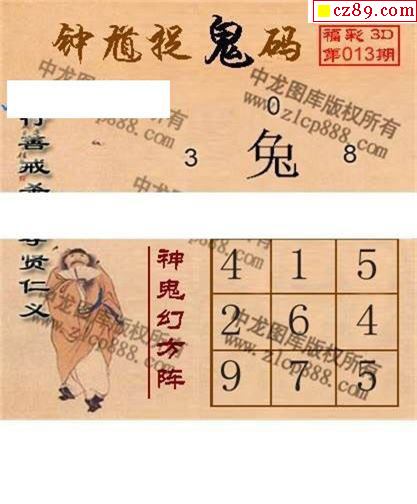 cz89.com
钟馗捉鬼码
福彩 3D
第013期
0
3 兔 8
行善戒
尊贤仁义
神鬼幻方阵
4 1 5
2 6 4
9 7 5
中龙图库版权所有
www.zlcp888.com
中龙图库版权所有
www.zlcp888.com
中龙图库版权所有
www.zlcp888.com